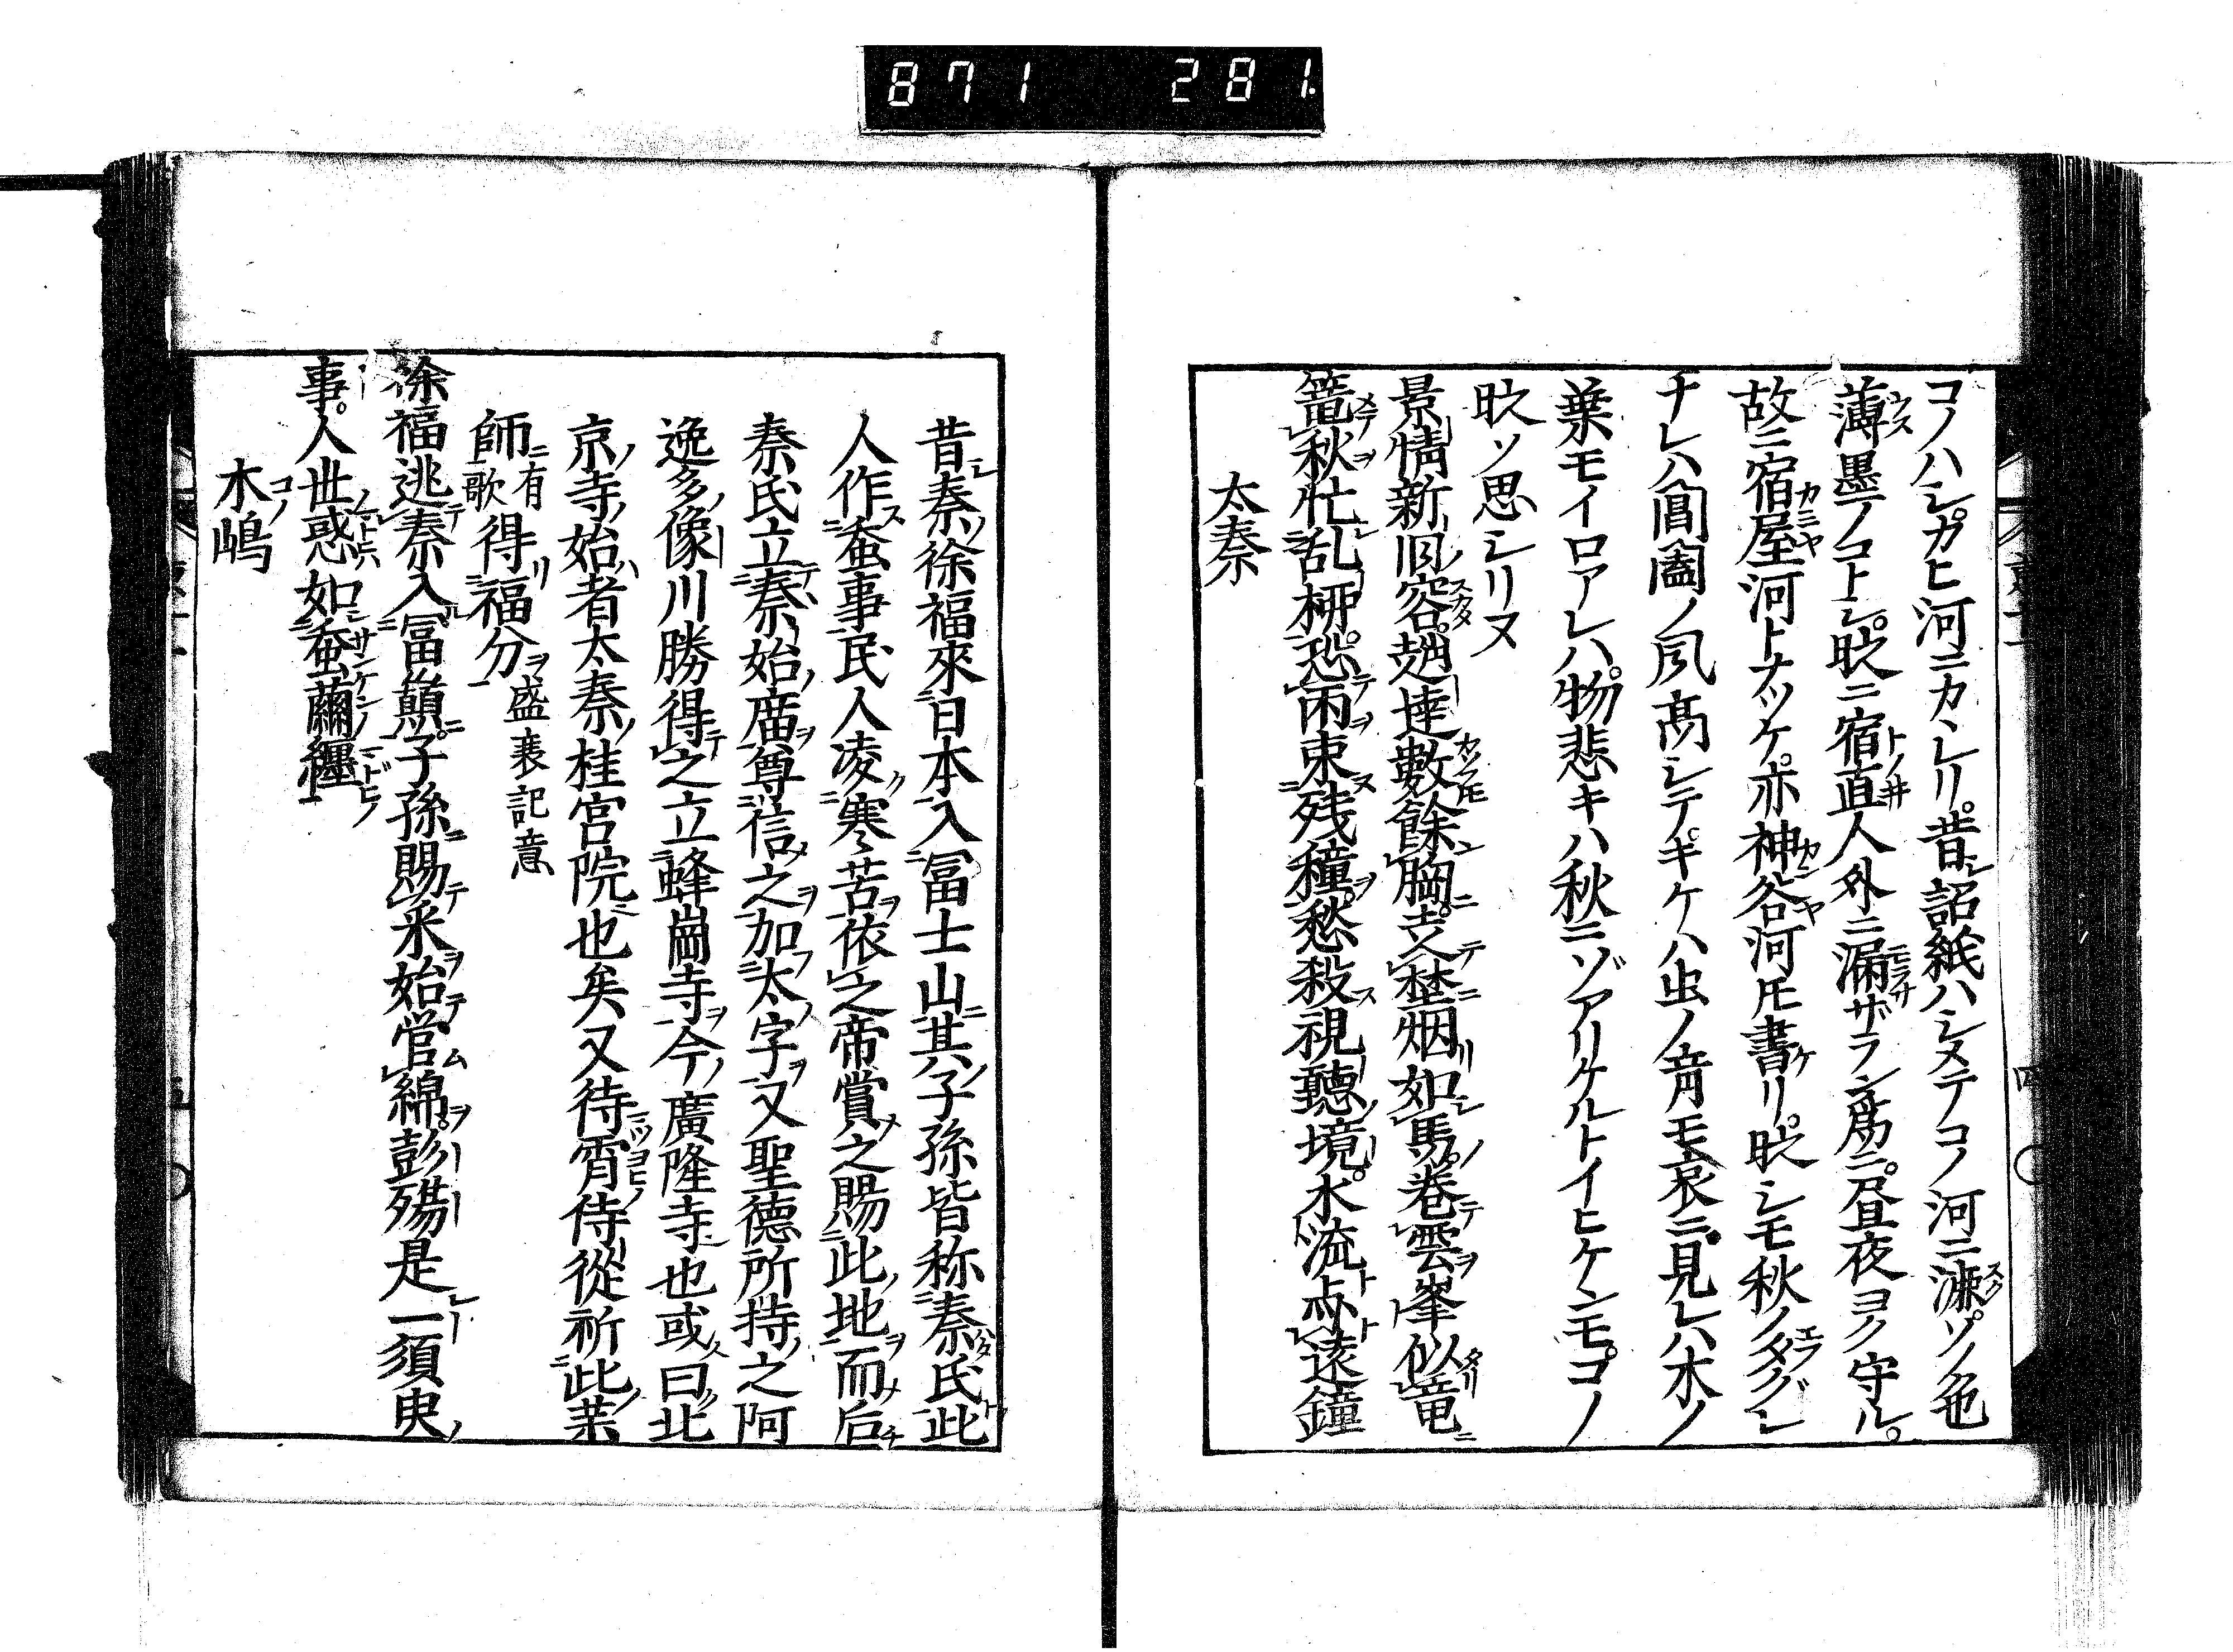 871 281
コノハシガヒ河ニカヽレリ。昔詔紙ハシメテコノ河ニ漉ソノ色
薄墨ノコトシ。昿ニ宿直人外ニ漏ザラン為ニ。昼夜ヨク守ル。
故ニ宿屋河トナツケ。亦神谷河トモ書リ。昿シモ秋ノタグシ
ナレハ閶闔ノ風高シテギケハ虫ノ音モ哀ニ見レハ木ノ
葉モイロアレハ。物悲キハ秋ニゾアリケルトイヒケンモ。コノ
昿ソ思シリヌ
景情新旧容。趙達數餘胸。立埜烟如馬。巻雲峯似竜
篭秋忙乱栁。恐雨束残穜。愁殺視聽境。水流亦遠鐘
太秦
昔秦徐福來日本入冨士山其子孫皆称秦氏此
人作蚕事民人凌寒苦依之帝賞之賜此地而后
秦氏立秦始廣尊信之加太字又聖德所持之阿
逸多像川勝得之立蜂崗寺今廣隆寺也或曰北
京寺始者太秦桂宮院也矣又待霄侍從祈此薬
師有歌得福分盛衰記意
徐福逃秦入冨巓。子孫賜米始営綿。彭殤是一須臾
事。人世惑如蚕繭纒
木嶋